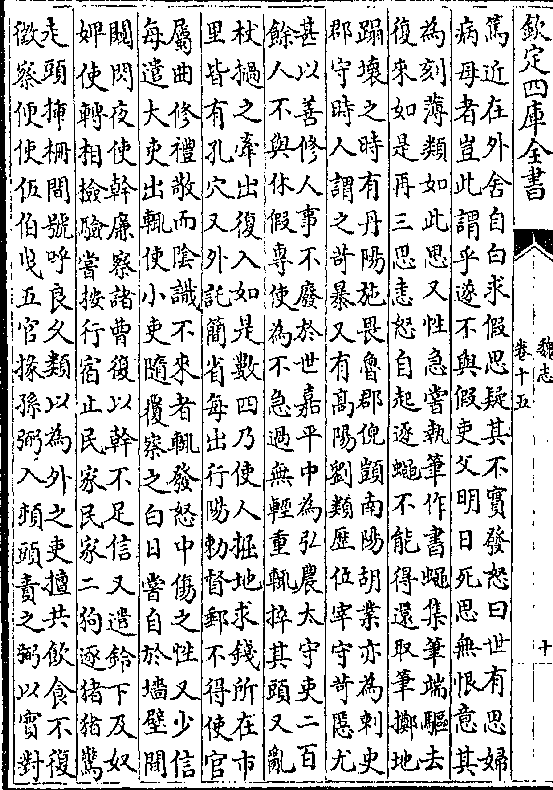 欽定四庫全書
魏志
卷十五
十
篤近在外舍自白求假思疑其不實發怒曰世有思婦
病母者豈此謂乎遂不與假吏父明日死思無恨意其
為刻薄類如此思又性急嘗執筆作書蠅集筆端驅去
復來如是再三思恚怒自起逐蠅不能得還取筆擲地
蹋壞之時有丹陽施畏魯郡倪顗南陽胡業亦為刺史
郡守時人謂之苛暴又有高陽劉類歷位宰守苛慝尤
甚以善修人事不廢於世嘉平中為弘農太守吏二百
餘人不與休假專使為不急過無輕重輒捽其頭又亂
杖撾之牽出復入如是數四乃使人掘地求錢所在市
里皆有孔穴又外託簡省每出行陽勑督郵不得使官
屬曲修禮敬而陰識不來者輒發怒中傷之性又少信
每遣大吏出輒使小吏隨覆察之白日嘗自於墻壁間
闚閃夜使幹廉察諸曹復以幹不足信又遣鈴下及奴
婢使轉相檢驗嘗按行宿止民家民家二狗逐猪猪驚
走頭揷柵間號呼良久類以為外之吏擅共飲食不復
徵察便使伍伯曳五官掾孫弼入頓頭責之弼以實對